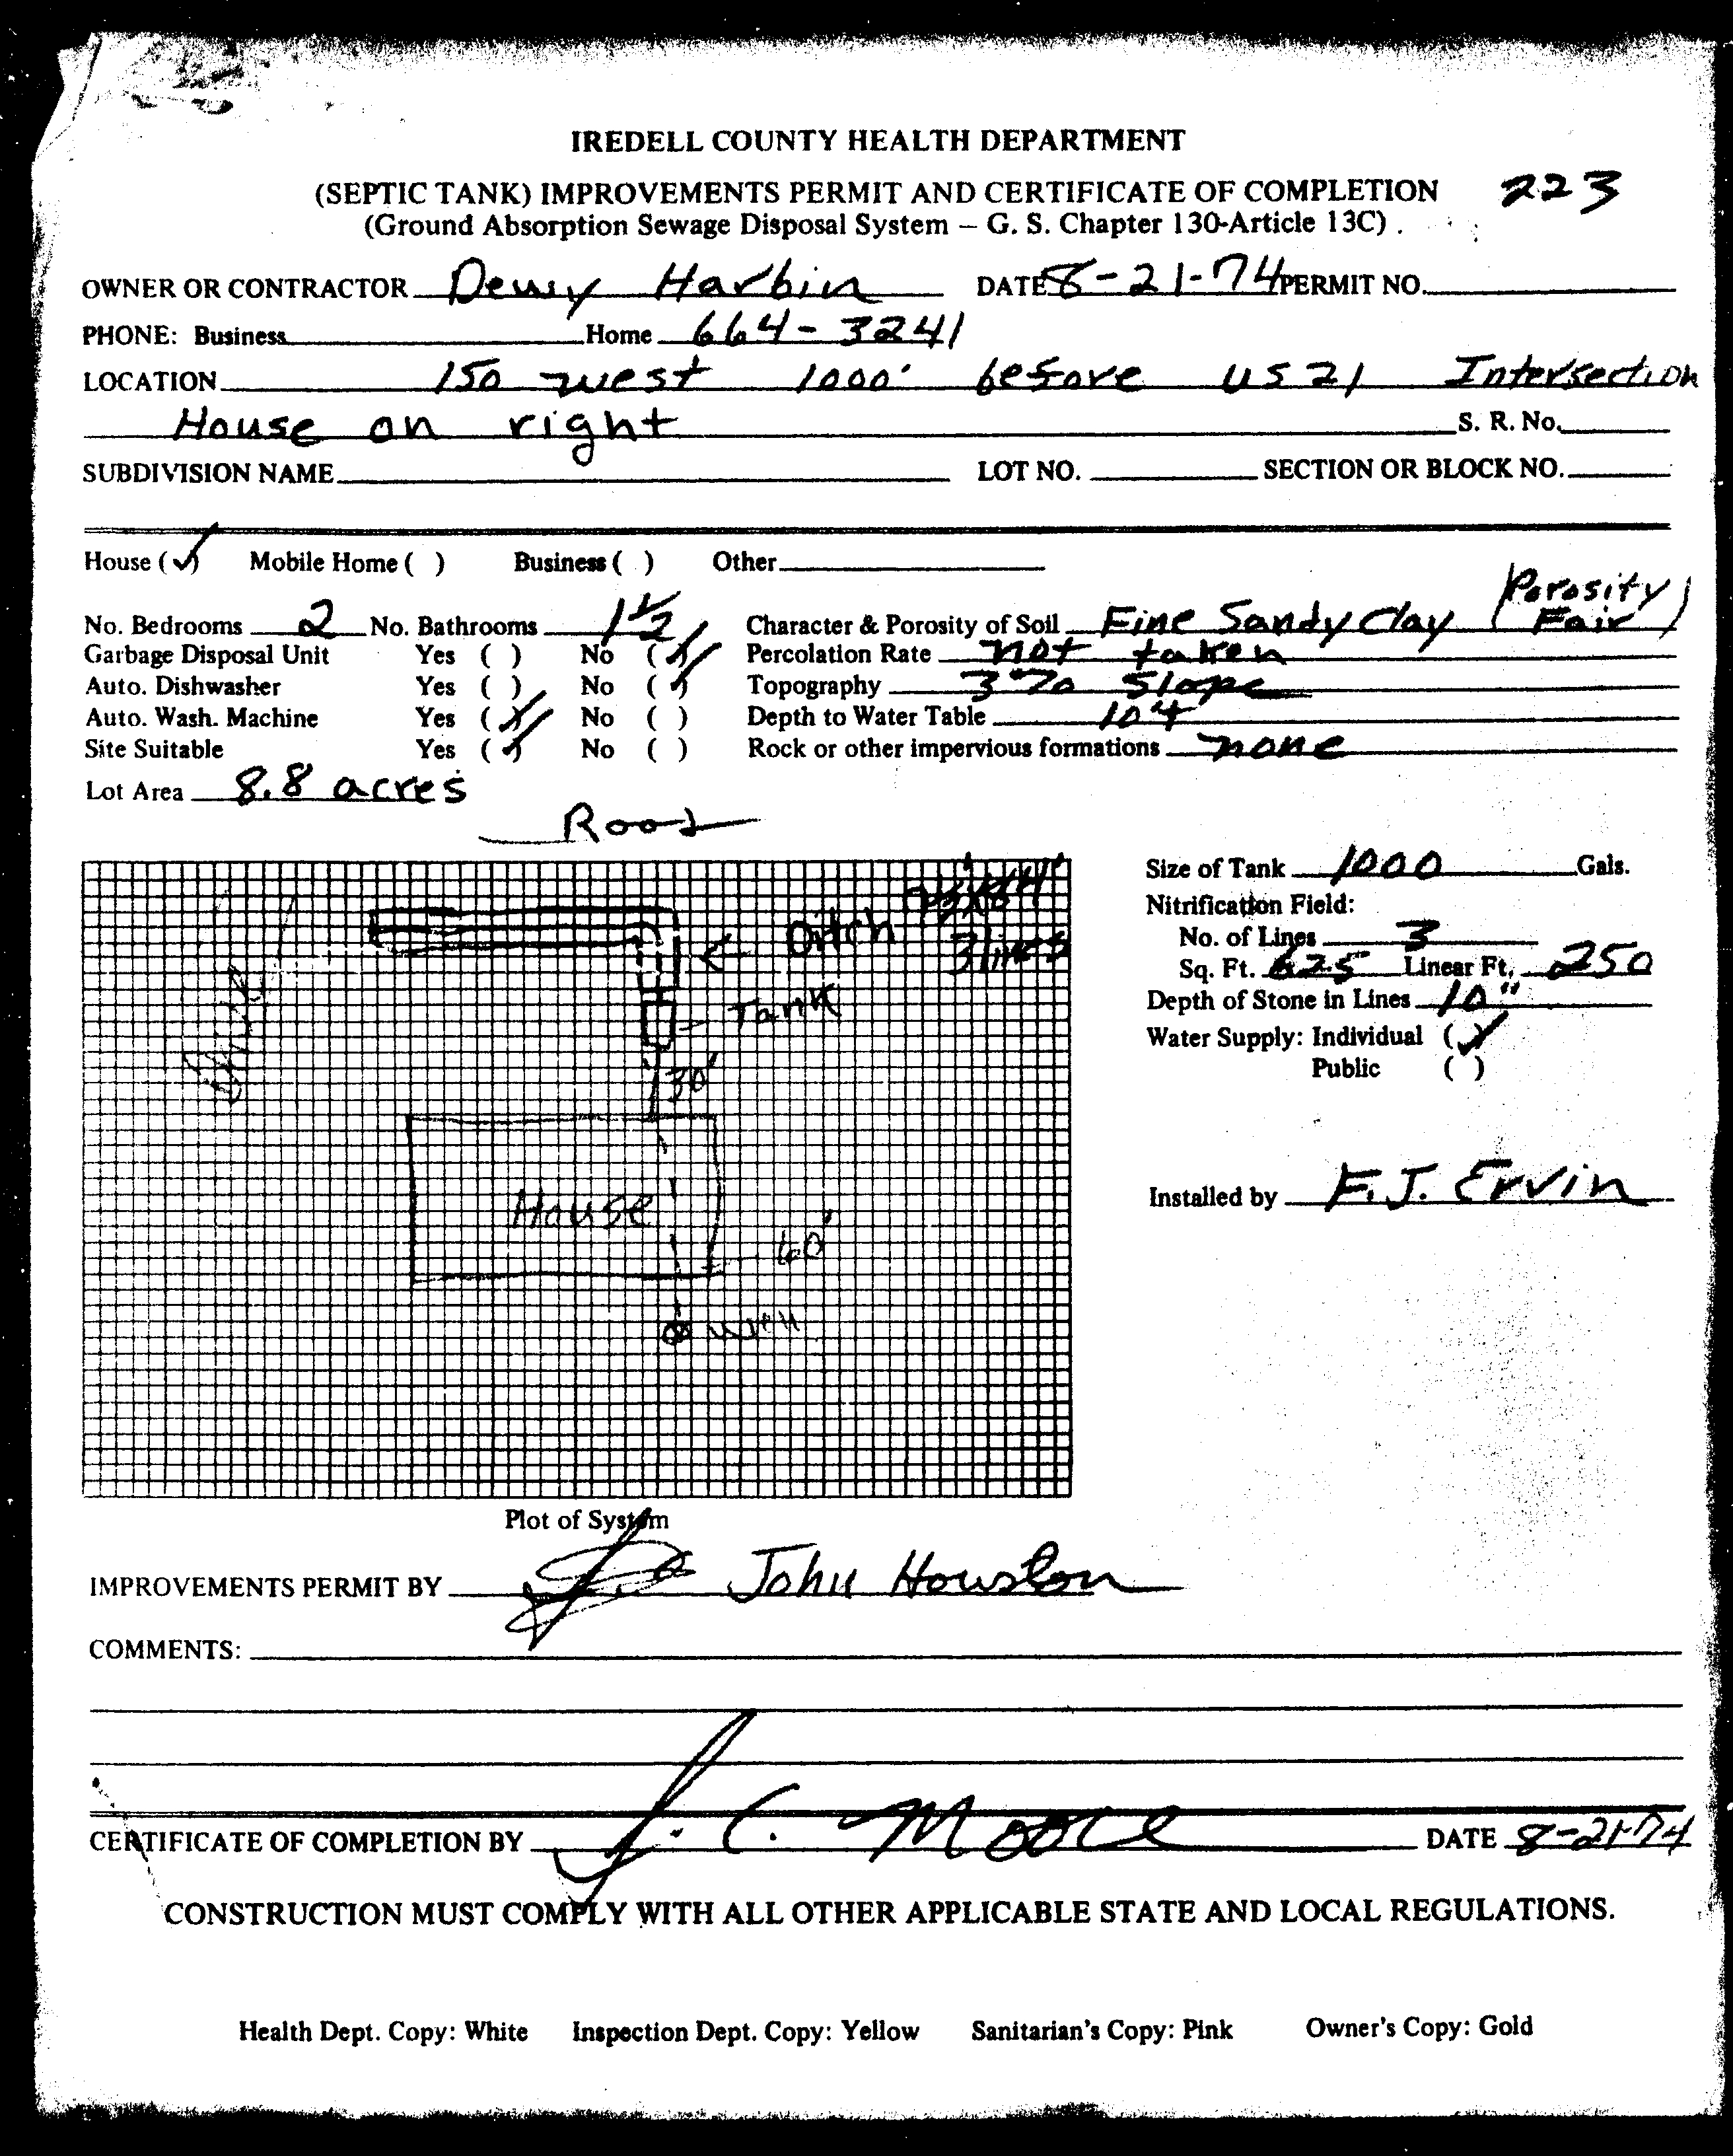 IREDELL COUNTY HEALTH DEPARTMENT
(SEPTIC TANK) IMPROVEMENTS PERMIT AND CERTIFICATE OF COMPLETION 223
(Ground Absorption Sewage Disposal System – G. S. Chapter 130-Article 13C)
OWNER OR CONTRACTOR Dewy Harbin DATE 8-21-74 PERMIT NO.
PHONE: Business Home 664-3241
LOCATION 150 west 1000' before US 21 Intersection
House on right S. R. No.
SUBDIVISION NAME LOT NO. SECTION OR BLOCK NO.
House (✓) Mobile Home ( ) Business ( ) Other
No. Bedrooms 2 No. Bathrooms 1 1/2 Character & Porosity of Soil Fine Sandy Clay (Porosity Fair)
Garbage Disposal Unit Yes ( ) No (✓) Percolation Rate not taken
Auto. Dishwasher Yes ( ) No (✓) Topography 3% Slope
Auto. Wash. Machine Yes (✓) No ( ) Depth to Water Table
Site Suitable Yes (✓) No ( ) Rock or other impervious formations none
Lot Area 8.8 acres
Road
Size of Tank 1000 Gals.
Nitrification Field:
No. of Lines 3
Sq. Ft. 625 Linear Ft. 250
Depth of Stone in Lines 10"
Water Supply: Individual (✓)
Public ( )
Installed by F.J. Ervin
Ditch
3 lines
Tank
Drive
30'
House
60'
well
Plot of System
IMPROVEMENTS PERMIT BY John Houston
COMMENTS:
CERTIFICATE OF COMPLETION BY J. C. Moore DATE 8-21-74
CONSTRUCTION MUST COMPLY WITH ALL OTHER APPLICABLE STATE AND LOCAL REGULATIONS.
Health Dept. Copy: White Inspection Dept. Copy: Yellow Sanitarian's Copy: Pink Owner's Copy: Gold